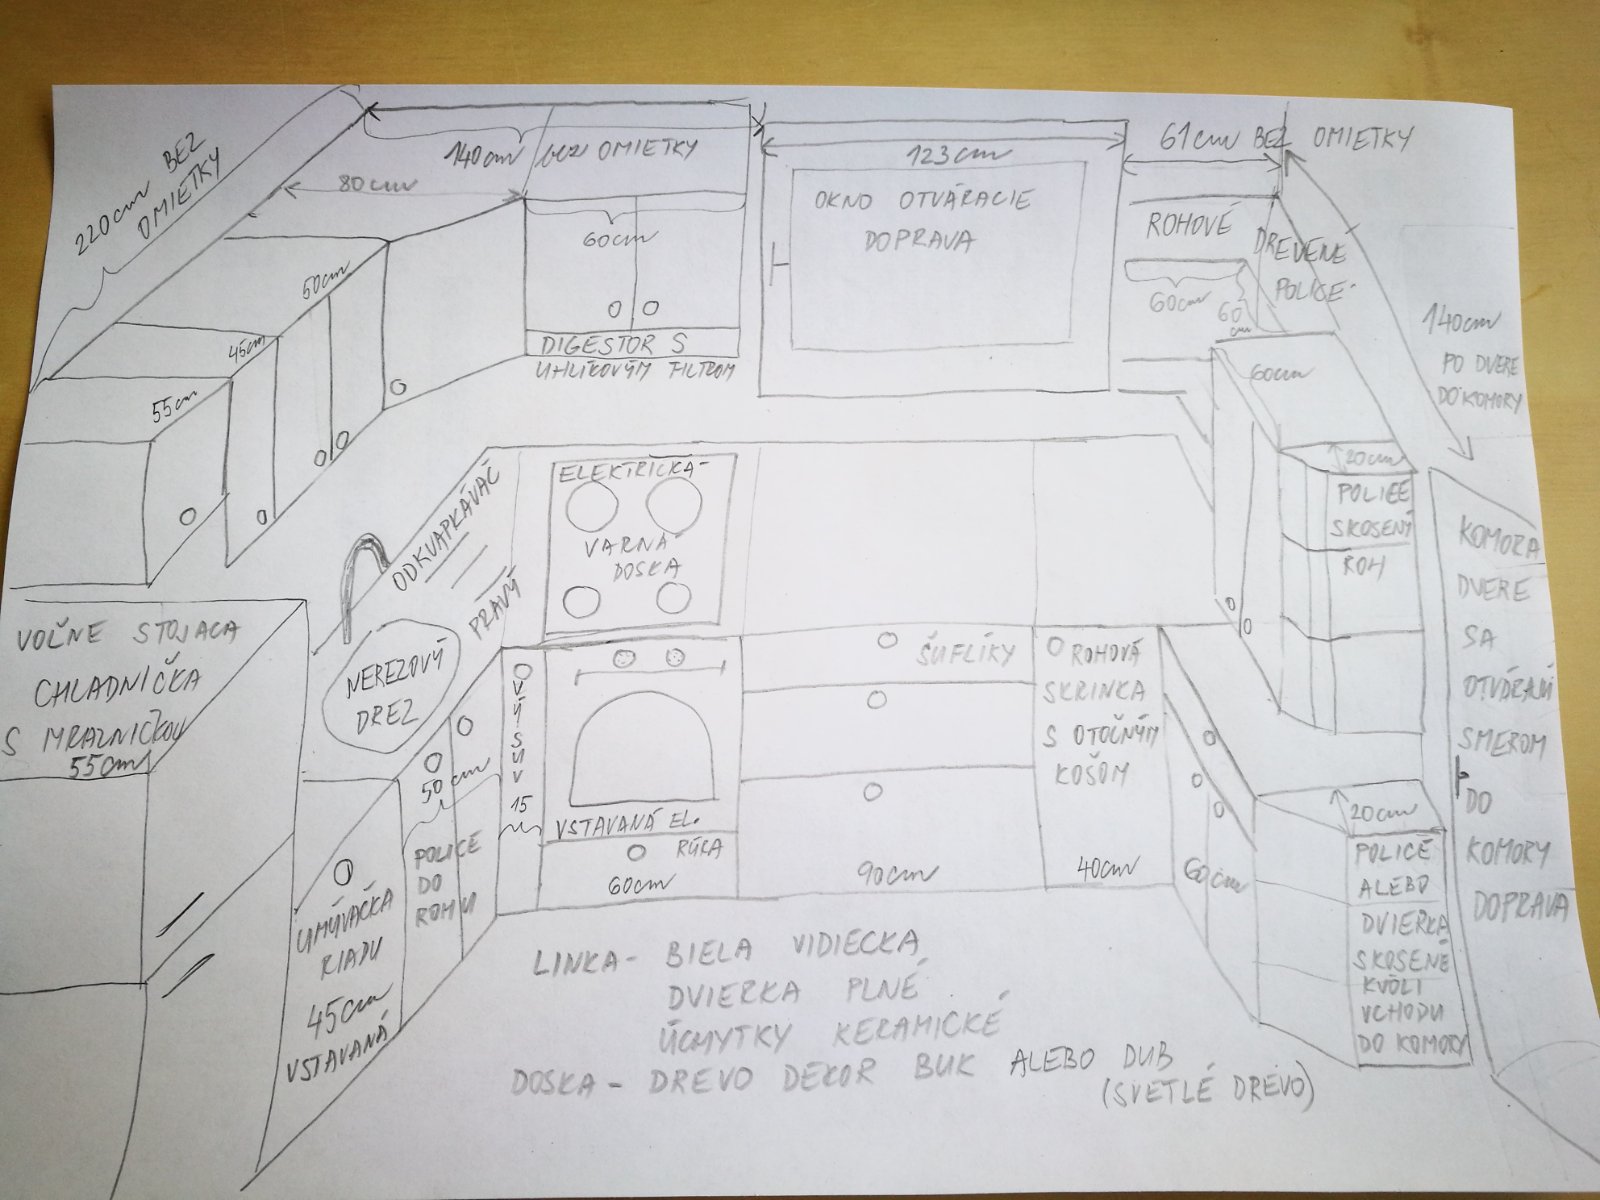 220cm BEZ
OMIETKY
140cm bez OMIETKY
80cm
60cm
50cm
45cm
55cm
DIGESTOR S
UHLÍKOVÝM FILTROM
123cm
OKNO OTVÁRACIE
DOPRAVA
61cm BEZ OMIETKY
ROHOVÉ
DREVENÉ
POLICE
60cm
60
cm
60cm
20cm
POLICE
SKOSENÝ
ROH
140cm
PO DVERE
DO KOMORY
KOMORA
DVERE
SA
OTVÁRAJÚ
SMEROM
DO
KOMORY
DOPRAVA
VOĽNE STOJACA
CHLADNIČKA
S MRAZNIČKOU
55cm
ODKVAPKÁVAČ
PRAVÝ
NEREZOVÝ
DREZ
ELEKTRICKÁ
VARNÁ
DOSKA
UMÝVAČKA
RIADU
45cm
VSTAVANÁ
50cm
POLICE
DO
ROHU
VÝSUV
15
VSTAVANÁ EL.
RÚRA
60cm
ŠUFLÍKY
90cm
ROHOVÁ
SKRINKA
S OTOČNÝM
KOŠOM
40cm
60cm
20cm
POLICE
ALEBO
DVIERKA
SKOSENÉ
KVÔLI
VCHODU
DO KOMORY
LINKA - BIELA VIDIECKA
DVIERKA PLNÉ
ÚCHYTKY KERAMICKÉ
DOSKA - DREVO DEKOR BUK ALEBO DUB
(SVETLÉ DREVO)